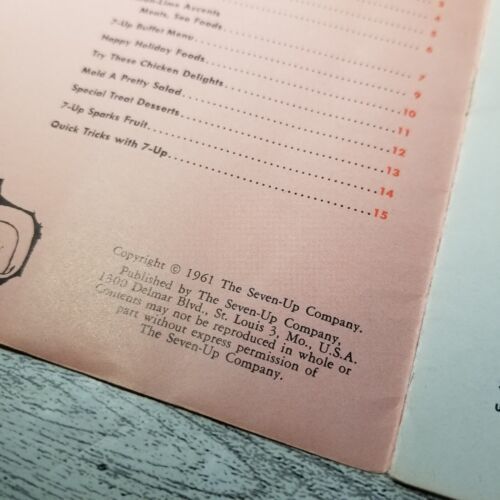 Lemon-Lime Accents
Meats, Sea Foods 4
7-Up Buffet Menu 5
Happy Holiday Foods 6
Try These Chicken Delights 7
Mold A Pretty Salad 9
Special Treat Desserts 10
7-Up Sparks Fruit 11
Quick Tricks with 7-Up 12
13
14
15
Copyright © 1961 The Seven-Up Company.
Published by The Seven-Up Company,
1300 Delmar Blvd., St. Louis 3, Mo., U.S.A.
Contents may not be reproduced in whole or
part without express permission of
The Seven-Up Company.